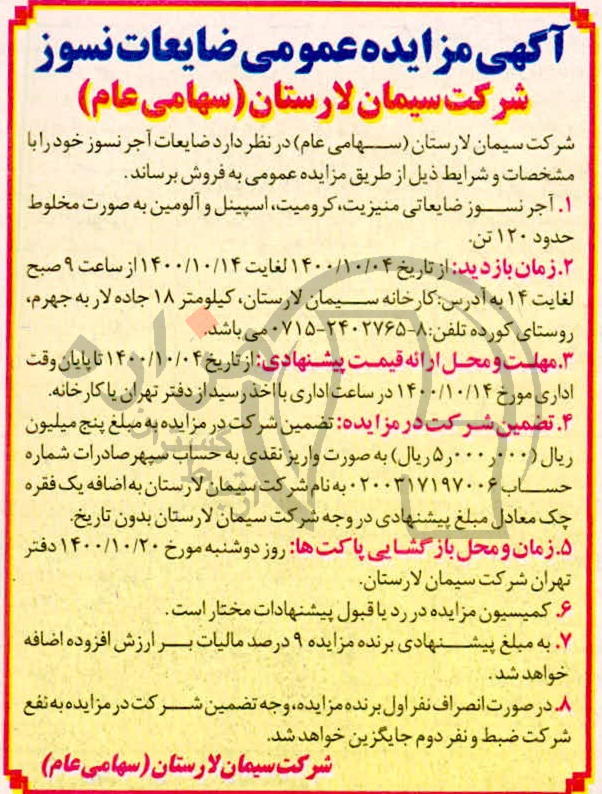 آگهی مزایده عمومی ضایعات نسوز
شرکت سیمان لارستان (سهامی عام)
شرکت سیمان لارستان (سهامی عام) در نظر دارد ضایعات آجر نسوز خود را با
مشخصات و شرایط ذیل از طریق مزایده عمومی به فروش برساند.
۱. آجر نسوز ضایعاتی منیزیت، کرومیت، اسپینل و آلومین به صورت مخلوط
حدود ۱۲۰ تن.
۲. زمان بازدید: از تاریخ ۱۴۰۰/۱۰/۰۴ لغایت ۱۴۰۰/۱۰/۱۴ از ساعت ۹ صبح
لغایت ۱۴ به آدرس: کارخانه سیمان لارستان، کیلومتر ۱۸ جاده لار به جهرم،
روستای کورده تلفن: ۸-۲۴۰۲۷۶۵-۰۷۱۵ می باشد.
۳. مهلت و محل ارائه قیمت پیشنهادی: از تاریخ ۱۴۰۰/۱۰/۰۴ تا پایان وقت
اداری مورخ ۱۴۰۰/۱۰/۱۴ در ساعت اداری با اخذ رسید از دفتر تهران یا کارخانه.
۴. تضمین شرکت در مزایده: تضمین شرکت در مزایده به مبلغ پنج میلیون
ریال (۵ر۰۰۰ر۰۰۰ ریال) به صورت واریز نقدی به حساب سپهر صادرات شماره
حساب ۰۲۰۰۳۱۷۱۹۷۰۰۶ به نام شرکت سیمان لارستان به اضافه یک فقره
چک معادل مبلغ پیشنهادی در وجه شرکت سیمان لارستان بدون تاریخ.
۵. زمان و محل بازگشایی پاکت ها: روز دوشنبه مورخ ۱۴۰۰/۱۰/۲۰ دفتر
تهران شرکت سیمان لارستان.
۶. کمیسیون مزایده در رد یا قبول پیشنهادات مختار است.
۷. به مبلغ پیشنهادی برنده مزایده ۹ درصد مالیات بر ارزش افزوده اضافه
خواهد شد.
۸. در صورت انصراف نفر اول برنده مزایده، وجه تضمین شرکت در مزایده به نفع
شرکت ضبط و نفر دوم جایگزین خواهد شد.
شرکت سیمان لارستان (سهامی عام)